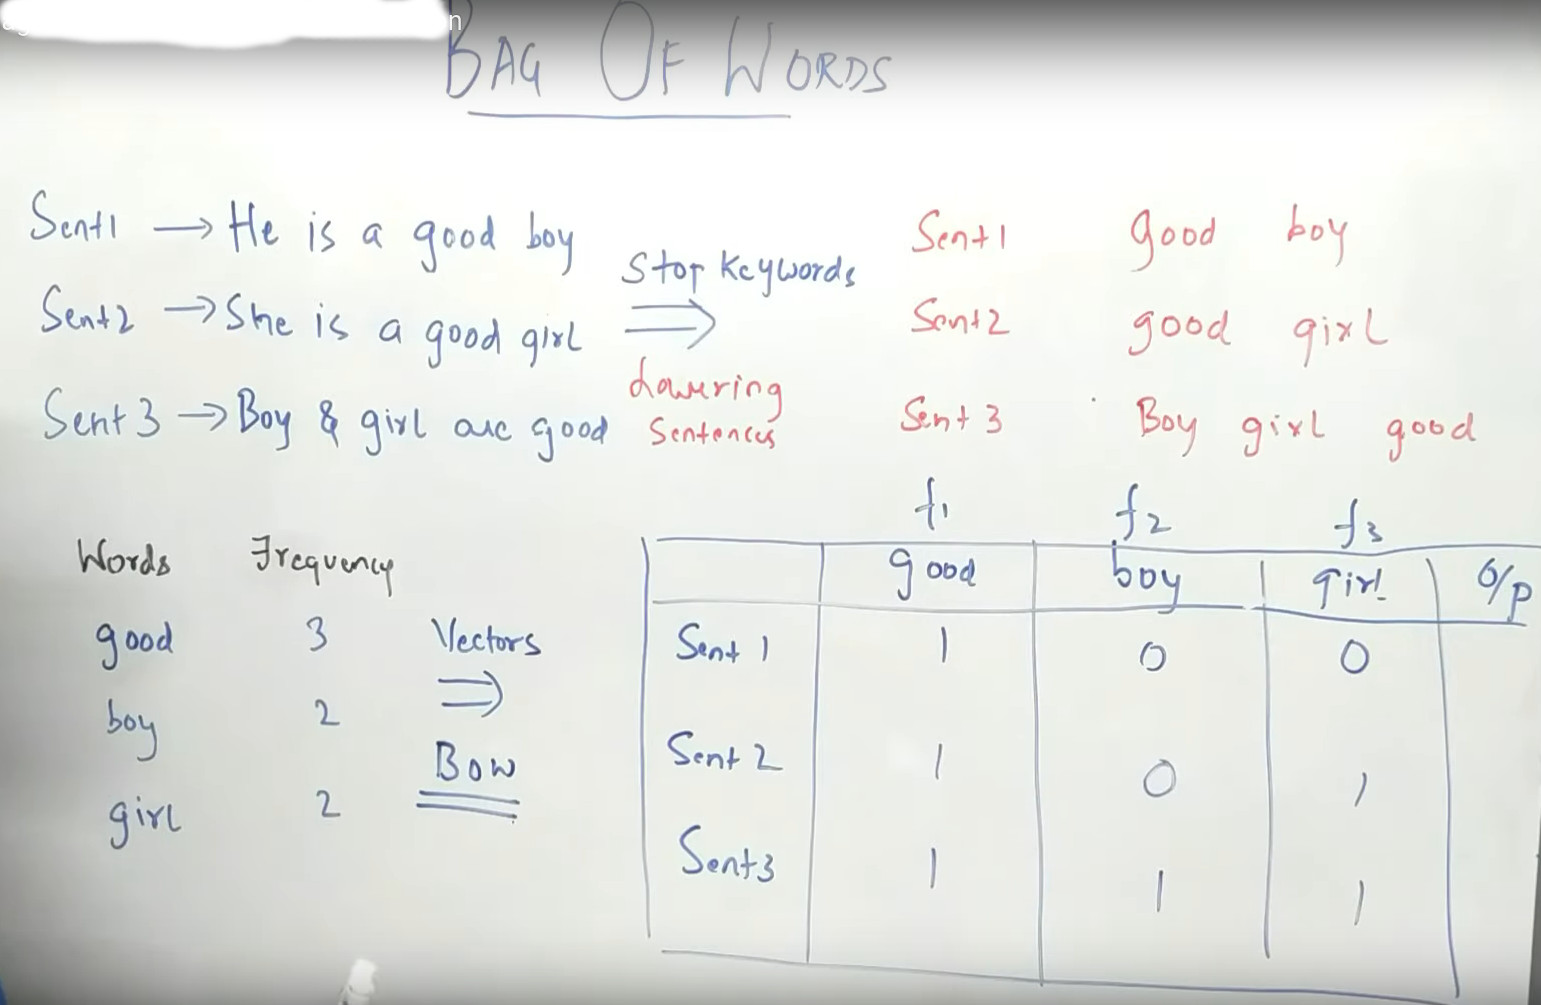 BAG OF WORDS
Sent1 → He is a good boy
Sent2 → She is a good girl
Sent 3 → Boy & girl are good
Stop Keywords
⇒
Lowering
Sentences
Sent1 good boy
Sent2 good girl
Sent 3 Boy girl good
Words Frequency
good 3
boy 2
girl 2
Vectors
⇒
BOW
f1 f2 f3
good boy girl O/p
Sent 1 1 0 0
Sent 2 1 0 1
Sent3 1 1 1